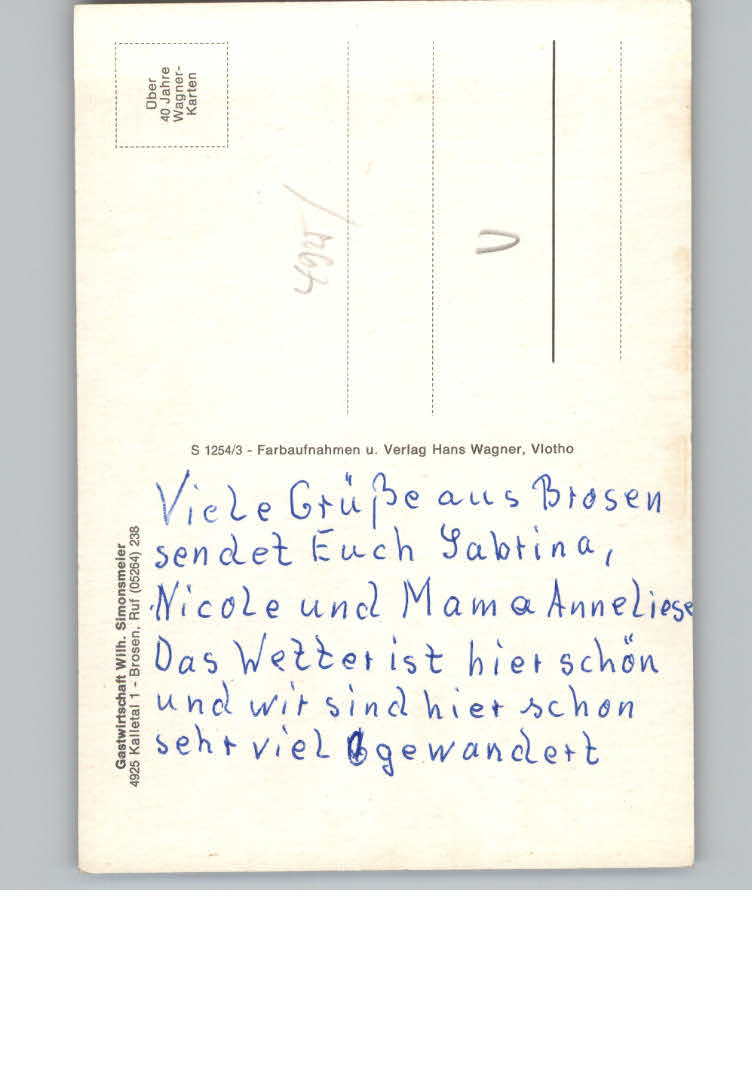 Über
40 Jahre
Wagner-
Karten
4925/
U
S 1254/3 - Farbaufnahmen u. Verlag Hans Wagner, Vlotho
Gastwirtschaft Wilh. Simonsmeier
4925 Kalletal 1 - Brosen, Ruf (05264) 238
Viele Grüße aus Brosen
sendet Euch Sabrina,
Nicole und Mama Anneliese
Das Wetter ist hier schön
und wir sind hier schon
sehr viel gewandert